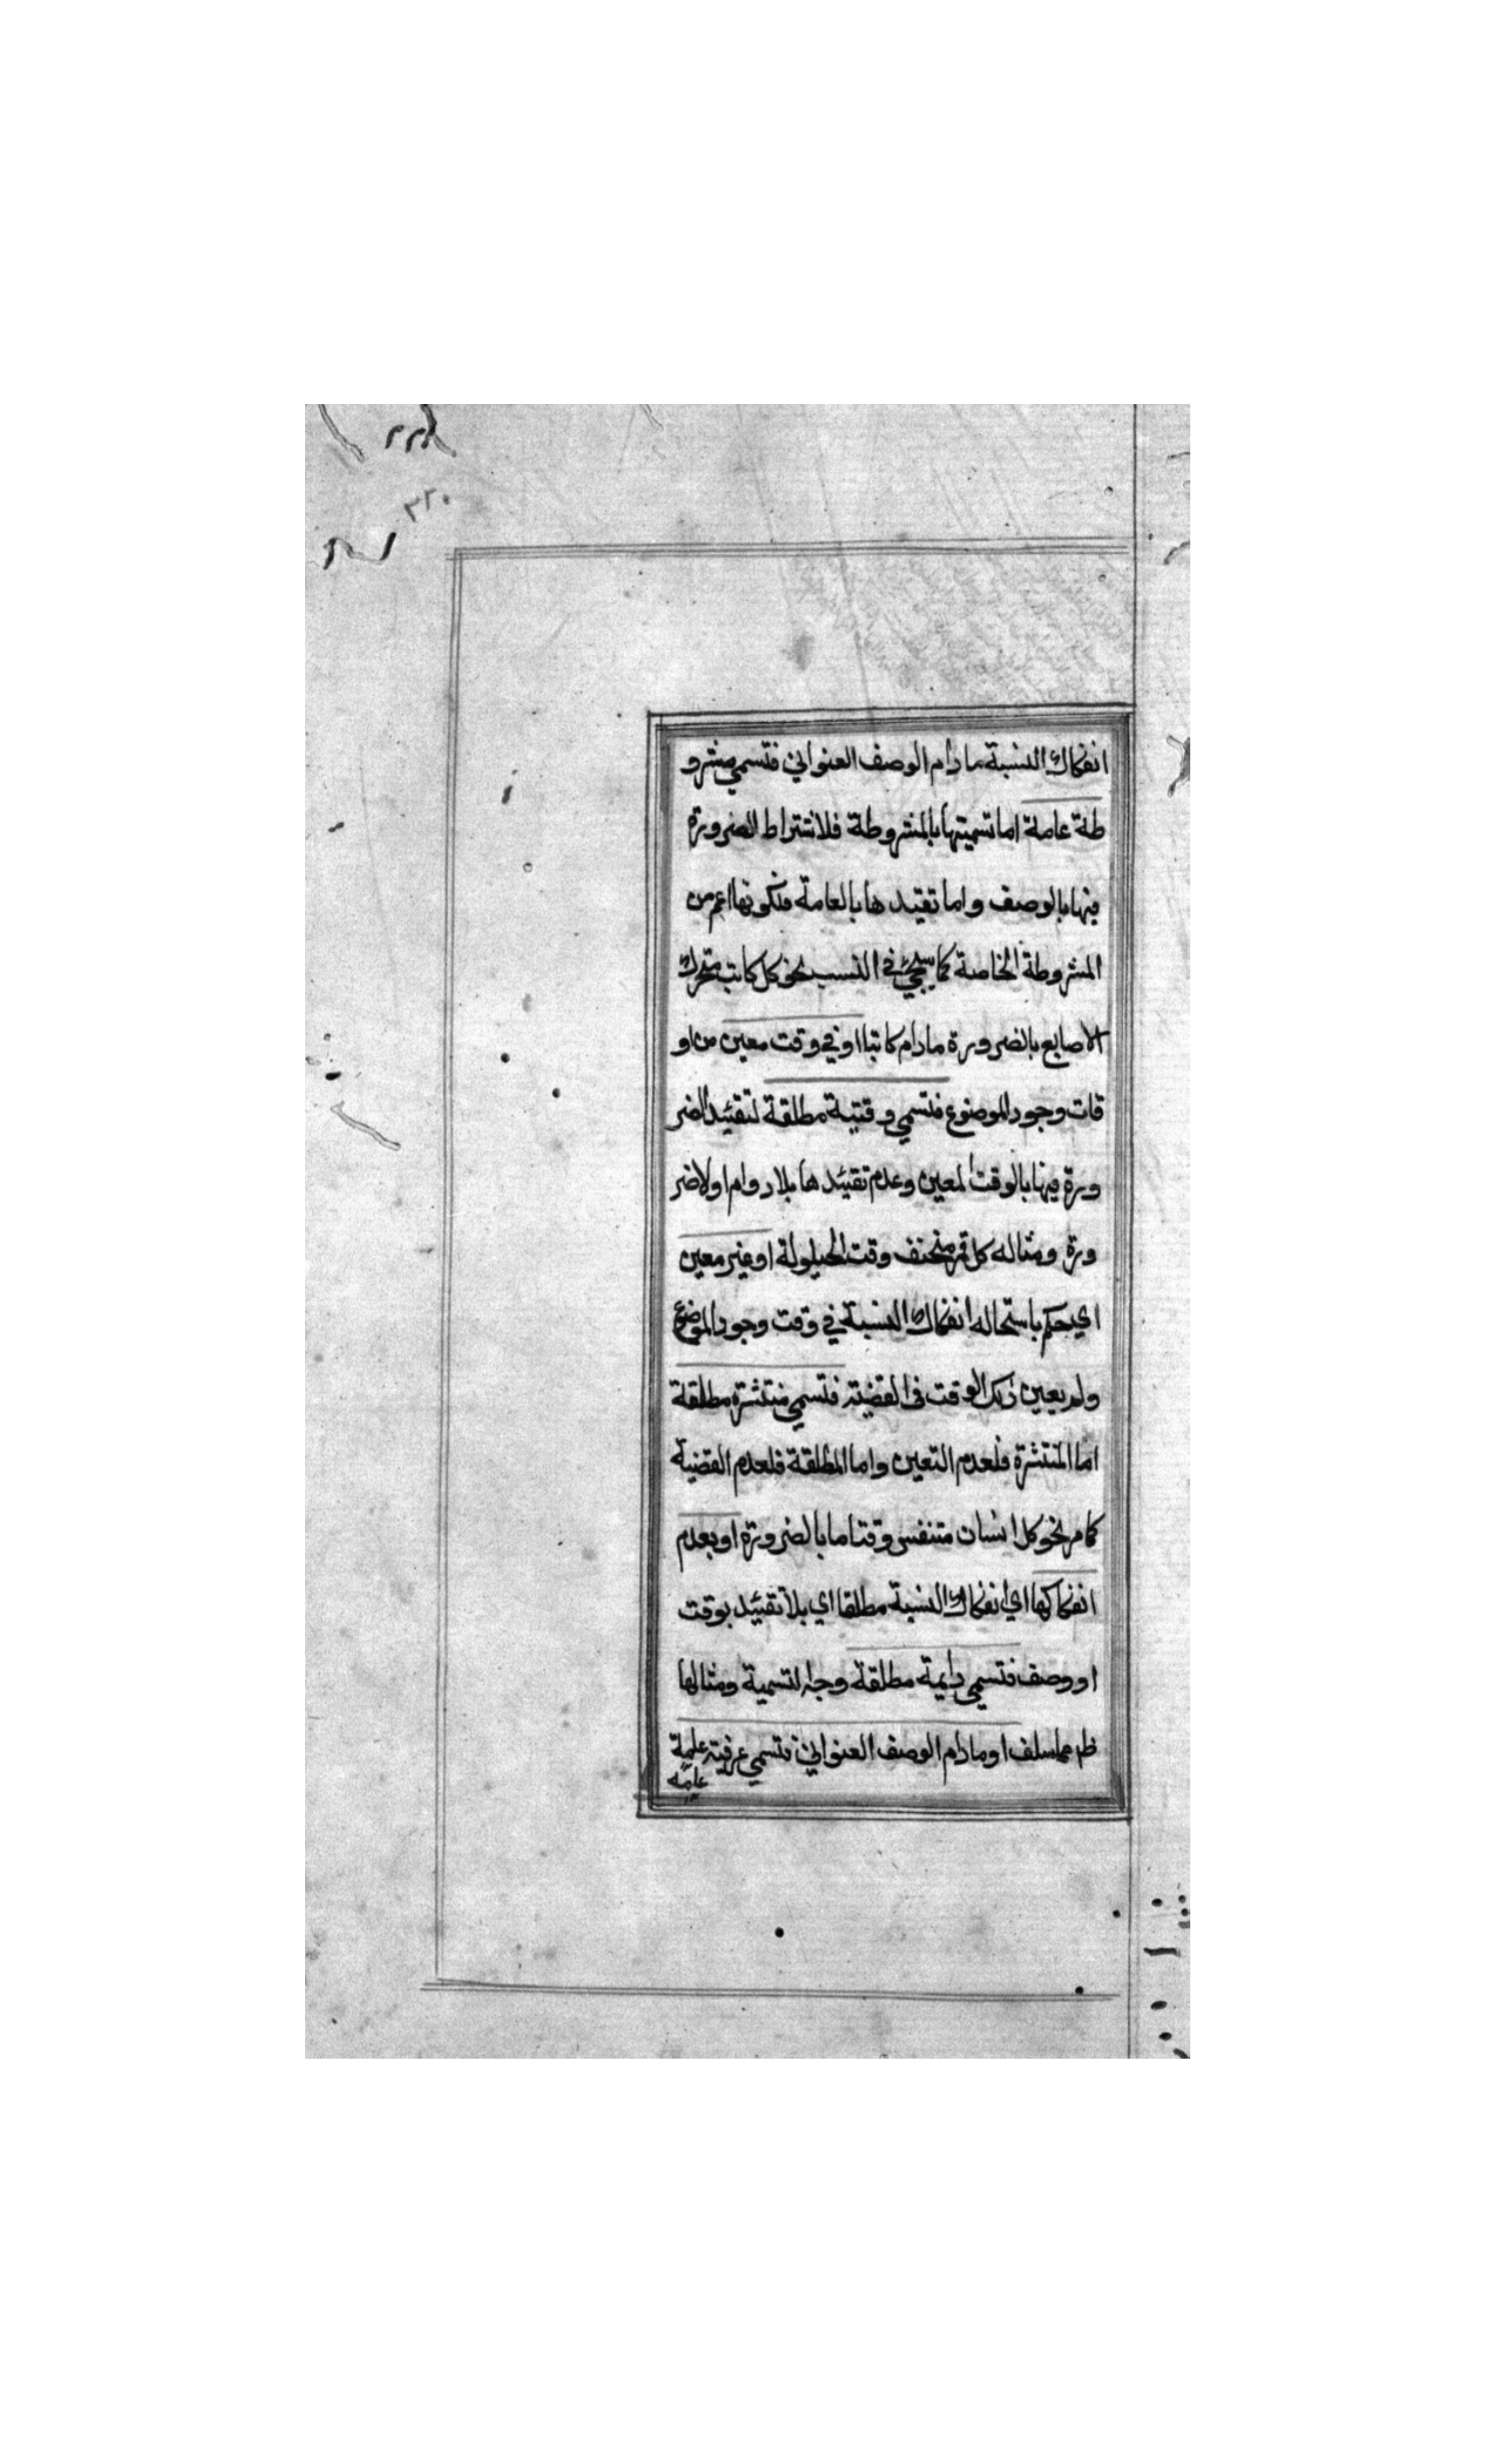 ٣٢٠
انفكاك النسبة مادام الوصف العنواني فتسمي مشرو
طة عامة اما تسميتها بالمشروطة فلاشتراط الضرورة
فيها بالوصف واما تقيد ها بالعامة فلكونها اعم من
المشروطة الخاصة كما سيجئ في النسب نحو كل كاتب متحرك
الاصابع بالضرورة مادام كاتبا او في وقت معين من او
قات وجود الموضوع فتسمي وقتية مطلقة لتقئيد الضر
ورة فيها بالوقت المعين وعدم تقئيد ها بلا دوام او لا ضر
ورة ومثاله كل قمر منخنف وقت الحيلولة او غير معين
اي يحكم باستحاله انفكاك النسبة في وقت وجود الموضوع
ولم يعين ذلك الوقت في القضية فتسمي منتشرة مطلقة
اما المنتشرة فلعدم التعين واما المطلقة فلعدم القضية
كما مر نحو كل انسان متنفس وقتا ما بالضرورة او بعدم
انفكاكها اي انفكاك النسبة مطلقا اي بلا تقئيد بوقت
او وصف فتسمي دايمة مطلقة وجه التسمية ومثالها
ظهر مما سلف او مادام الوصف العنواني فتسمي عرفية عامة
عامة